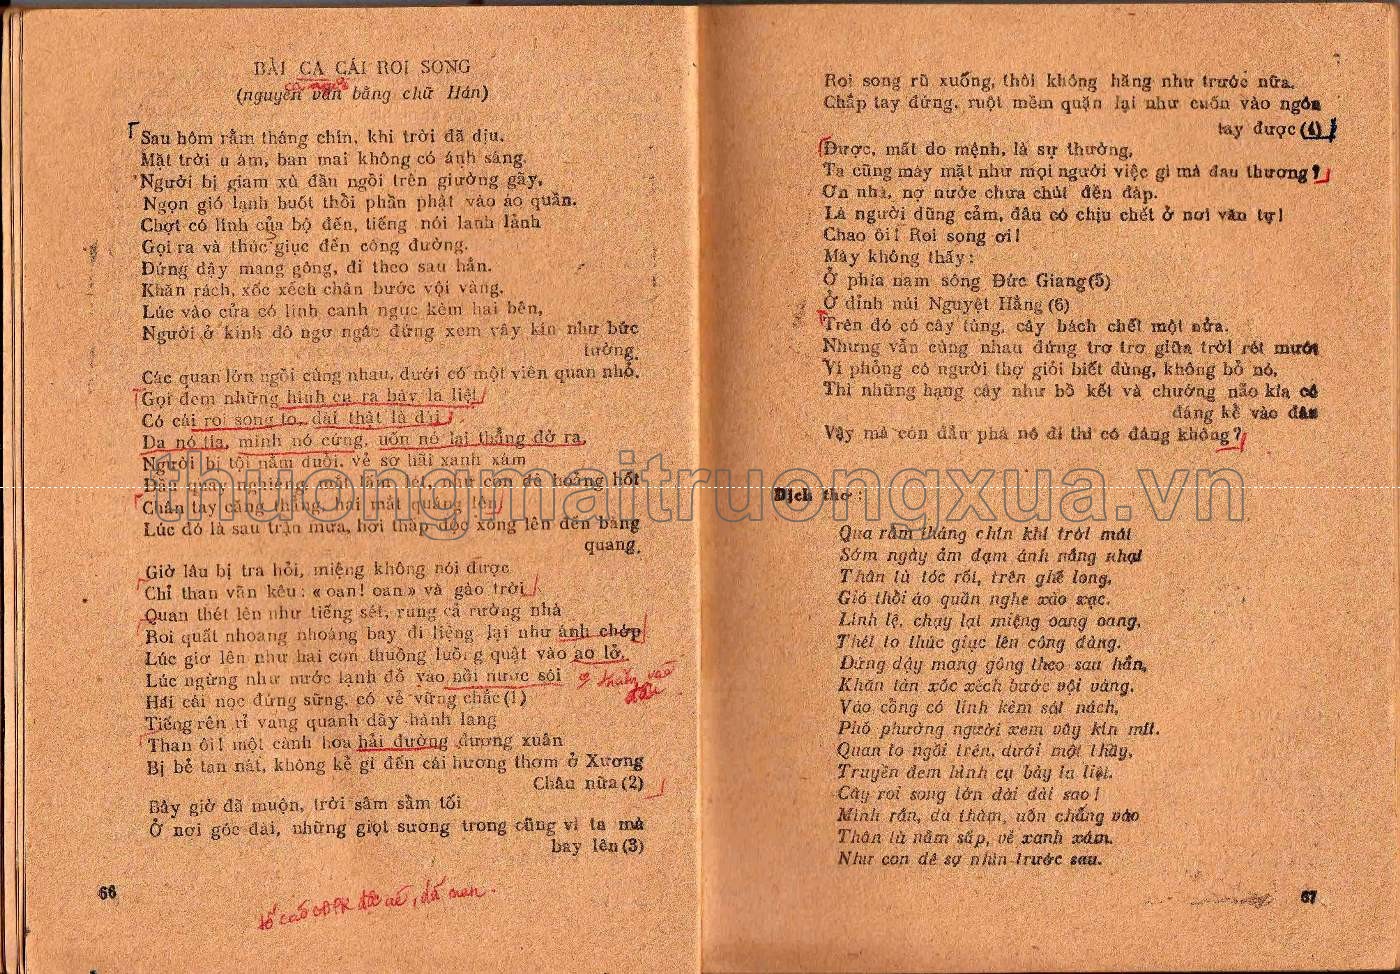 BÀI CA CÁI ROI SONG
ca ngợi
(nguyên văn bằng chữ Hán)
Sau hôm rằm tháng chín, khi trời đã dịu.
Mặt trời u ám, ban mai không có ánh sáng.
Người bị giam xù đầu ngồi trên giường gãy,
Ngọn gió lạnh buốt thổi phần phật vào áo quần.
Chợt có lính của bộ đến, tiếng nói lanh lảnh
Gọi ra và thúc giục đến công đường.
Đứng dậy mang gông, đi theo sau hắn.
Khăn rách, xốc xếch chân bước vội vàng,
Lúc vào cửa có lính canh ngục kèm hai bên,
Người ở kinh đô ngơ ngác đứng xem vây kín như bức
tường.
Các quan lớn ngồi cùng nhau, dưới có một viên quan nhỏ.
Gọi đem những hình cụ ra bày la liệt
Có cái roi song to, dài thật là dài
Da nó tía, mình nó cứng, uốn nó lại thẳng đờ ra,
Người bị tội nằm duỗi, vẻ sợ hãi xanh xám
Đầu quay nghiêng mắt lấm lét, như con dê hoảng hốt
Chân tay căng thẳng, hai mắt quáng lên
Lúc đó là sau trận mưa, hơi thấp độc xông lên đến bàng
quang.
Giờ lâu bị tra hỏi, miệng không nói được
Chỉ than vãn kêu: «oan! oan» và gào trời
Quan thét lên như tiếng sét, rung cả rường nhà
Roi quất nhoang nhoáng bay đi liệng lại như ánh chớp
Lúc giơ lên như hai con thuồng luồng quật vào ao lở.
Lúc ngừng như nước lạnh đổ vào nồi nước sôi
Hai cái nọc đứng sững, có vẻ vững chắc (1)
Tiếng rên rỉ vang quanh dãy hành lang
Than ôi! một cành hoa hải đường đương xuân
Bị bẻ tan nát, không kể gì đến cái hương thơm ở Xương
Châu nữa (2)
Bây giờ đã muộn, trời sâm sầm tối
Ở nơi góc đài, những giọt sương trong cũng vì ta mà
bay lên (3)
66
tố cáo
Roi song rũ xuống, thôi không hăng như trước nữa.
Chắp tay đứng, ruột mềm quặn lại như cuốn vào ngón
tay được (4)
Được, mất do mệnh, là sự thường,
Ta cũng mày mặt như mọi người việc gì mà đau thương?
Ơn nhà, nợ nước chưa chút đền đáp.
Là người dũng cảm, đâu có chịu chết ở nơi văn tự!
Chao ôi! Roi song ơi!
Mày không thấy:
Ở phía nam sông Đức Giang (5)
Ở đỉnh núi Nguyệt Hằng (6)
Trên đó có cây tùng, cây bách chết một nửa.
Nhưng vẫn cùng nhau đứng trơ trơ giữa trời rét mướt
Ví phỏng có người thợ giỏi biết dùng, không bỏ nó,
Thì những hạng cây như bồ kết và chướng não kia có
đáng kể vào đâu
Vậy mà còn đẫn phá nó đi thì có đáng không?
thuongmaitruongxua.vn
Dịch thơ:
Qua rằm tháng chín khí trời mát
Sớm ngày ảm đạm ánh nắng nhạt
Thân tù tóc rối, trên ghế long,
Gió thổi áo quần nghe xào xạc.
Lính lệ, chạy lại miệng oang oang,
Thét to thúc giục lên công đàng.
Đứng dậy mang gông theo sau hắn,
Khăn tàn xốc xếch bước vội vàng.
Vào cổng có lính kèm sát nách,
Phố phường người xem vây kín mít.
Quan to ngồi trên, dưới một thầy,
Truyền đem hình cụ bày la liệt.
Cây roi song lớn dài dài sao!
Mình rắn, da thâm, uốn chẳng vào
Thân tù nằm sấp, vẻ xanh xám.
Như con dê sợ nhìn trước sau.
67